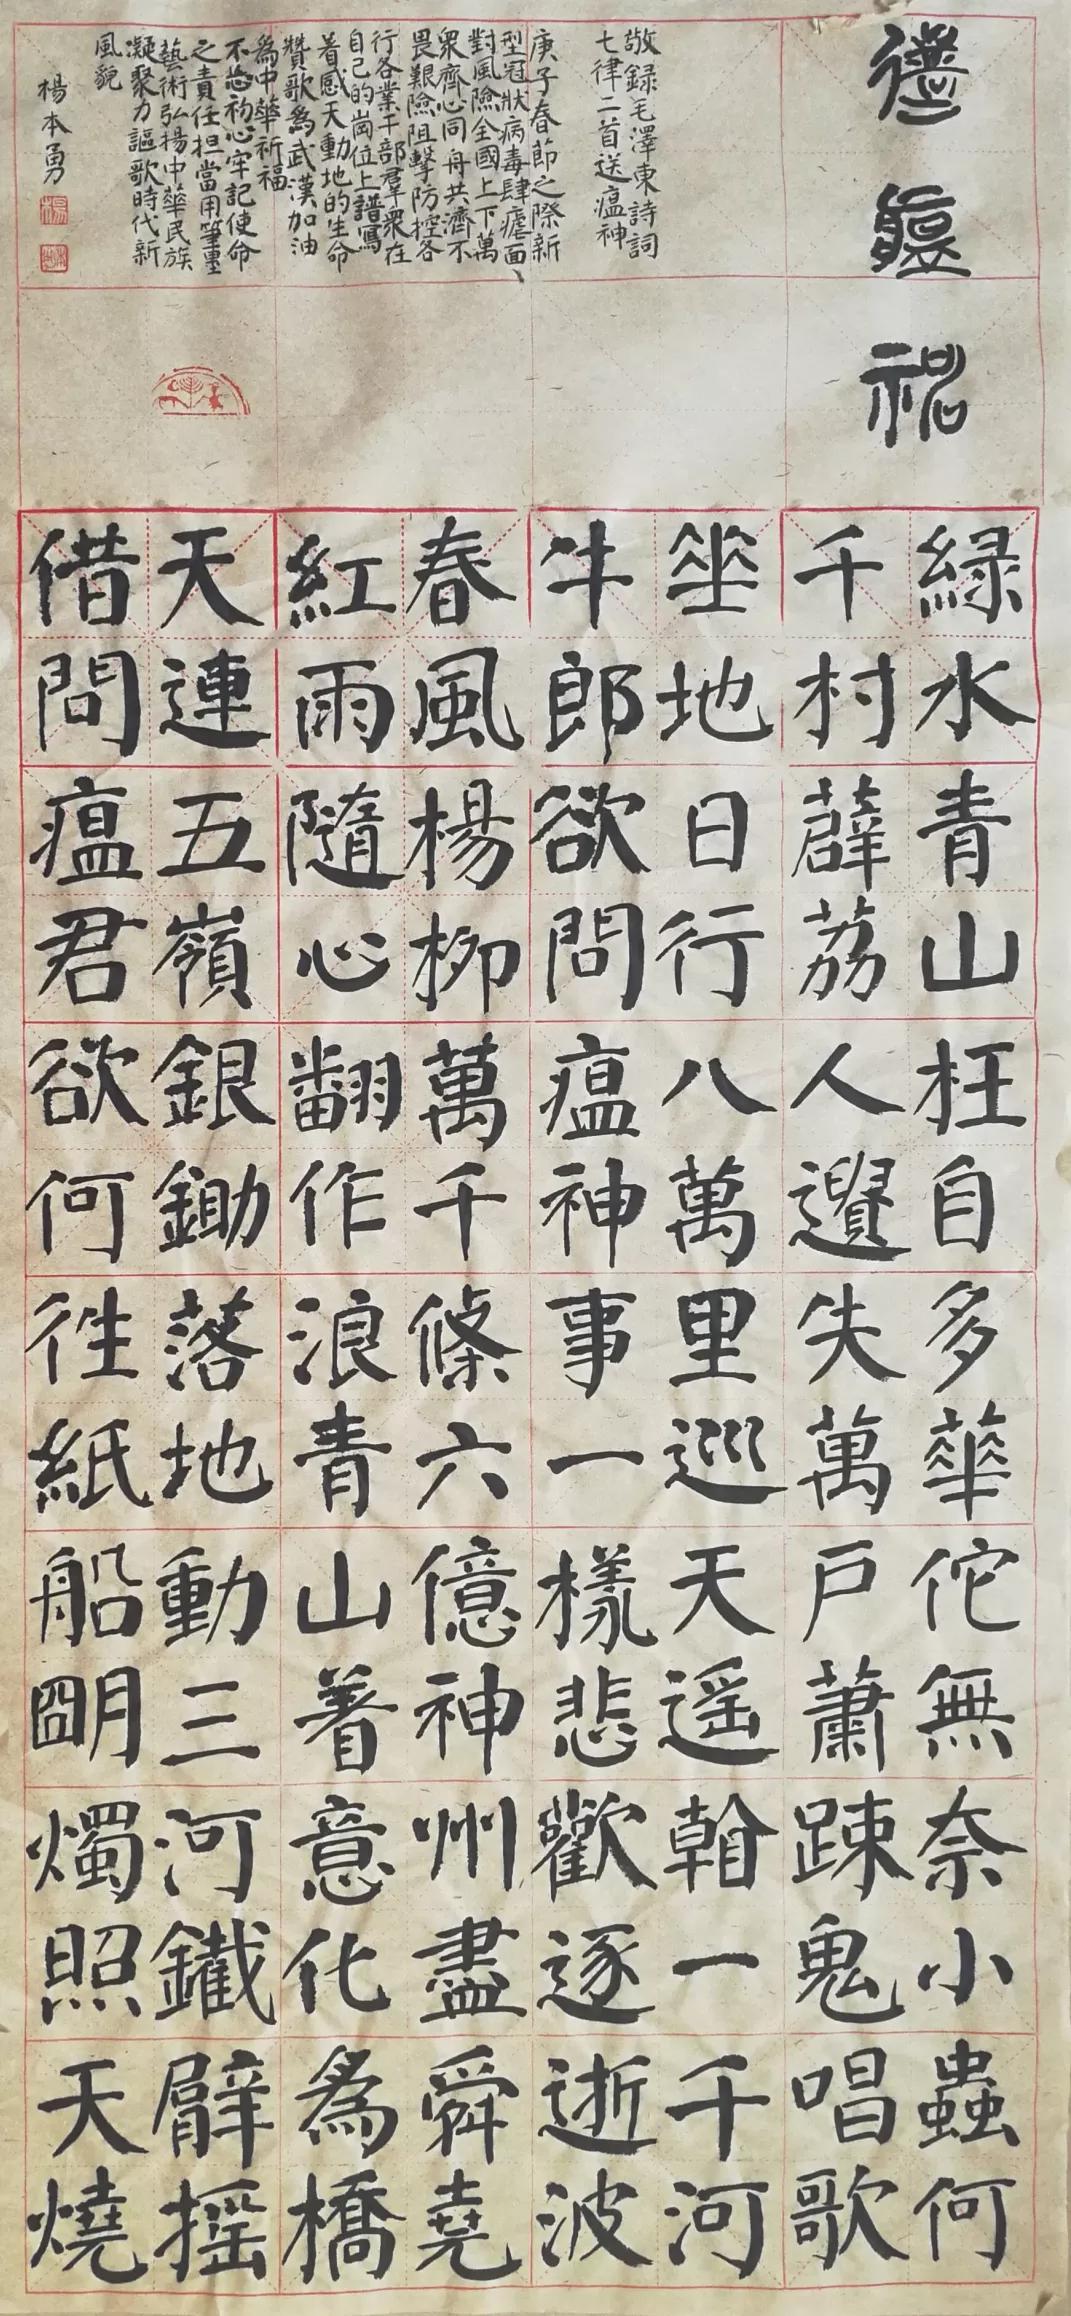 送瘟神
緑水青山枉自多華佗無奈小蟲何
千村薜荔人遺失萬戶蕭踈鬼唱歌
坐地日行八萬里巡天遥看一千河
牛郎欲問瘟神事一樣悲歡逐逝波
春風楊柳萬千條六億神州盡舜堯
紅雨隨心翻作浪青山着意化為橋
天連五嶺銀鋤落地動三河鐵臂摇
借問瘟君欲何往紙船明燭照天燒
敬録毛澤東詩詞
七律二首送瘟神
庚子春節之際新
型冠狀病毒肆瘧面
對風險全國上下萬
衆齊心同舟共濟不
畏艱險阻擊防控各
行各業干部羣衆在
自己的崗位上譜寫
着感天動地的生命
贊歌為武漢加油
為中華祈福
不忘初心牢記使命
之責任担當用筆墨
藝術弘揚中華民族
凝聚力謳歌時代新
風貌
楊本勇